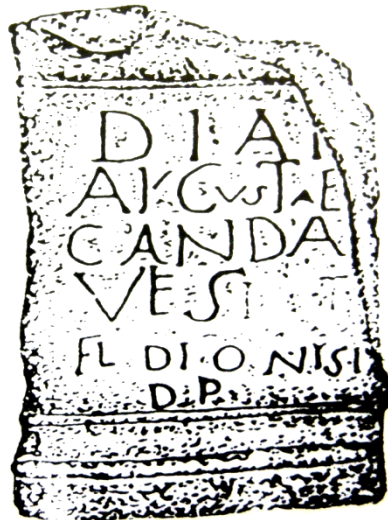 DIAI
AVGVSTAE
CANDA
VESI
FL DIONISI
D.P.